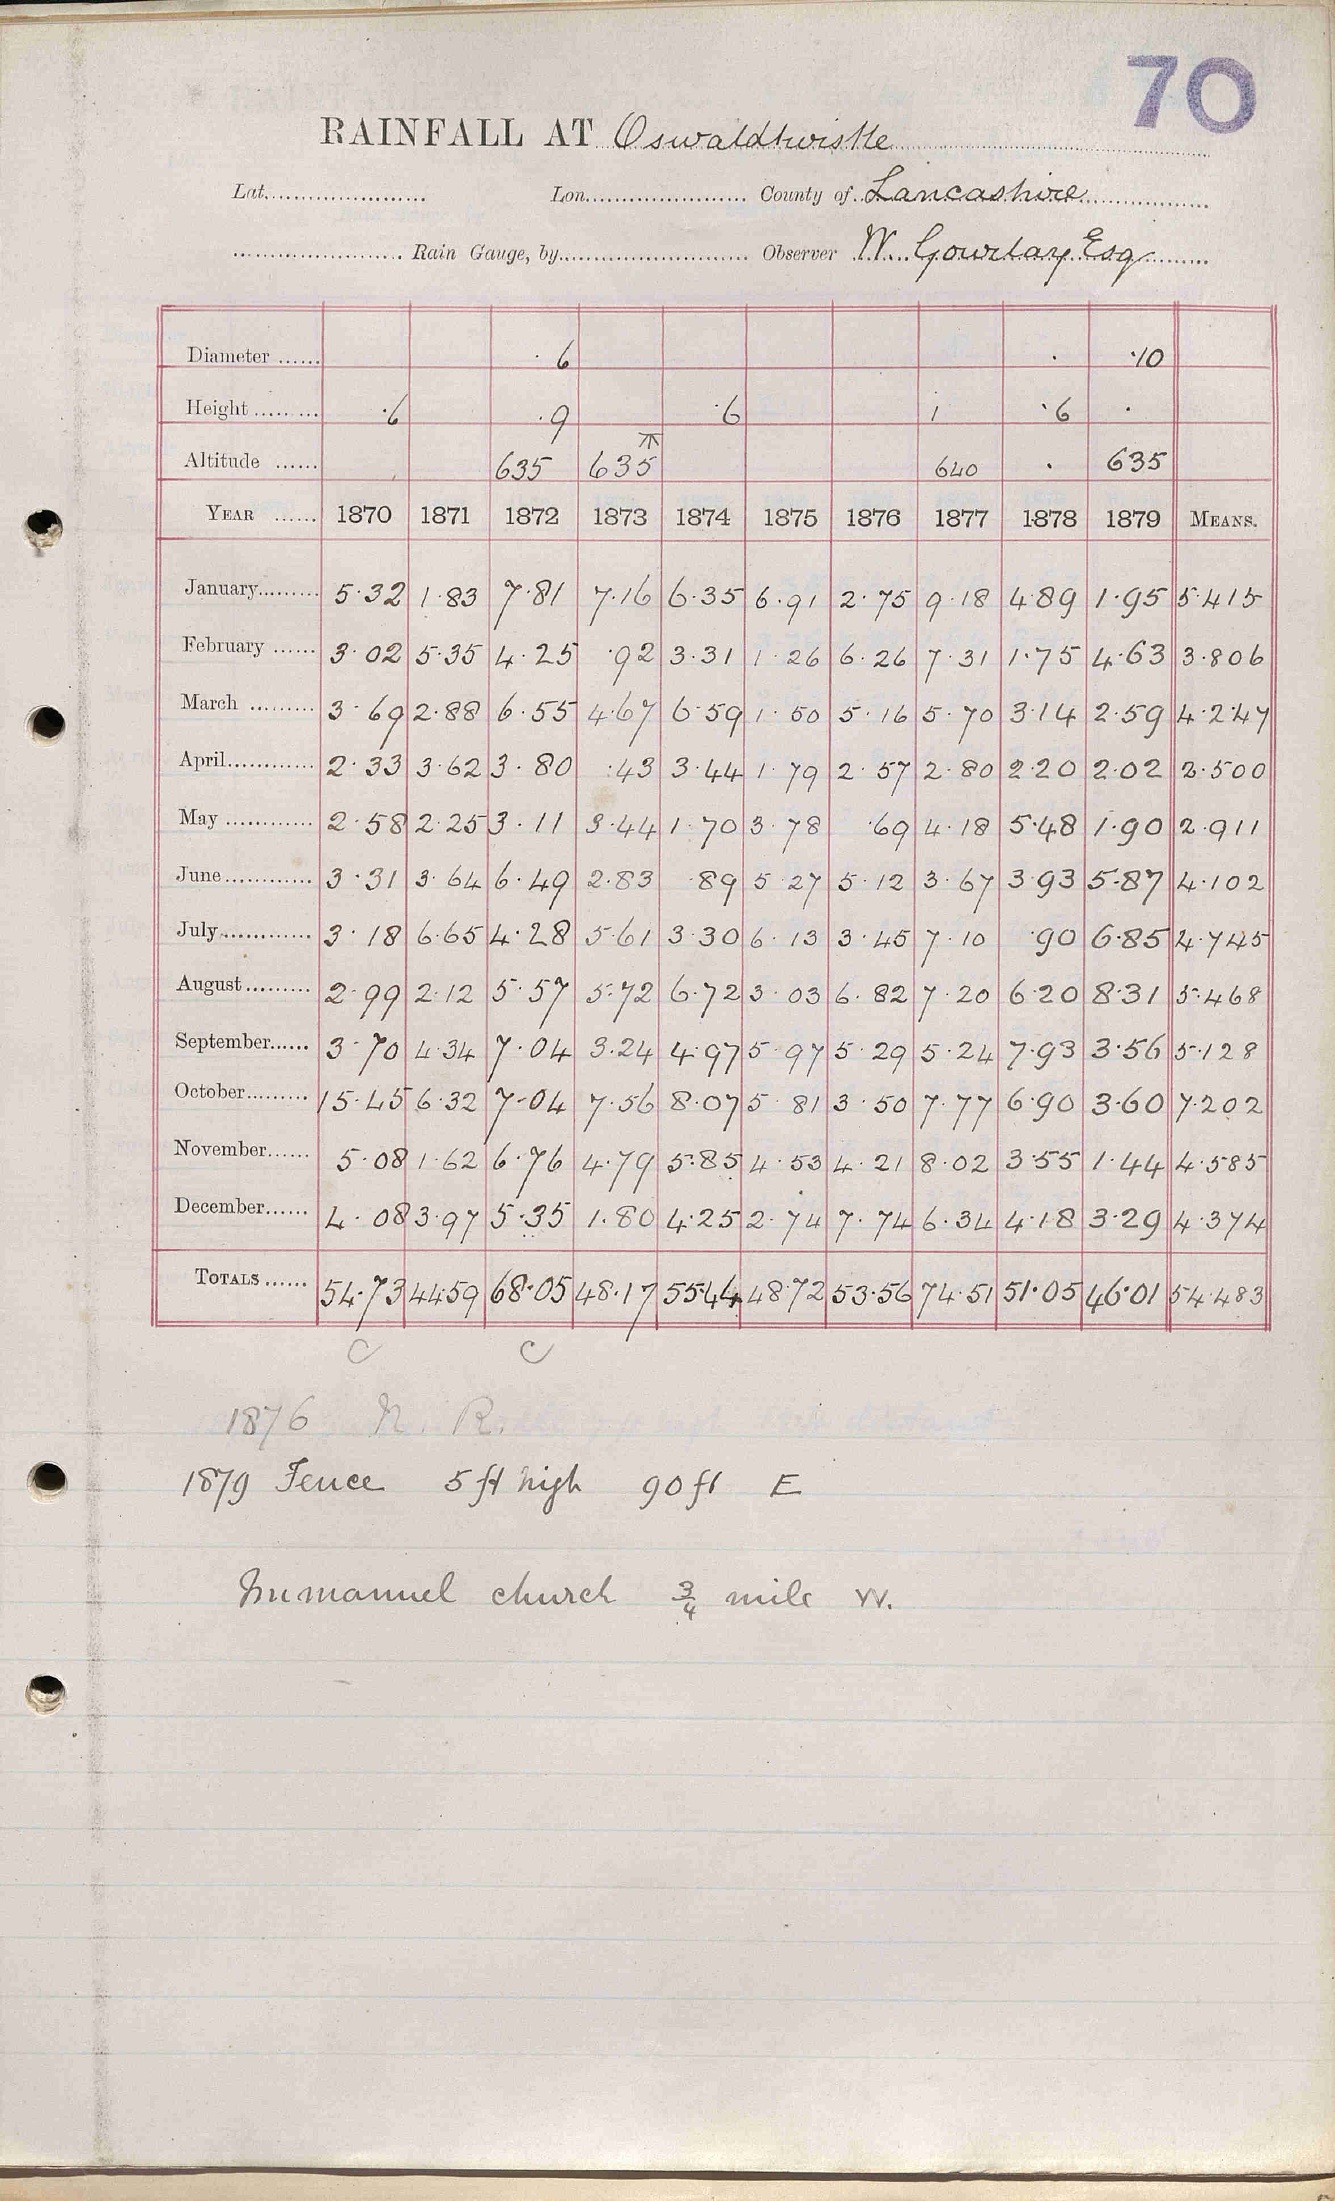 70
RAINFALL AT Oswaldtwistle
Lat. Lon. County of Lancashire
Rain Gauge, by Observer W. Gourlay Esq
Diameter ...... · 6 · ·10
Height ......... ·6 ·9 ·6 1 ·6 ·
Altitude ...... 635 635 640 · 635
YEAR ...... 1870 1871 1872 1873 1874 1875 1876 1877 1878 1879 MEANS.
January......... 5·32 1·83 7·81 7·16 6·35 6·91 2·75 9·18 4·89 1·95 5·415
February ...... 3·02 5·35 4·25 ·92 3·31 1·26 6·26 7·31 1·75 4·63 3·806
March ......... 3·69 2·88 6·55 4·67 6·59 1·50 5·16 5·70 3·14 2·59 4·247
April............ 2·33 3·62 3·80 ·43 3·44 1·79 2·57 2·80 2·20 2·02 2·500
May ............ 2·58 2·25 3·11 3·44 1·70 3·78 ·69 4·18 5·48 1·90 2·911
June............ 3·31 3·64 6·49 2·83 ·89 5·27 5·12 3·67 3·93 5·87 4·102
July............ 3·18 6·65 4·28 5·61 3·30 6·13 3·45 7·10 ·90 6·85 4·745
August......... 2·99 2·12 5·57 5·72 6·72 3·03 6·82 7·20 6·20 8·31 5·468
September...... 3·70 4·34 7·04 3·24 4·97 5·97 5·29 5·24 7·93 3·56 5·128
October......... 15·45 6·32 7·04 7·56 8·07 5·81 3·50 7·77 6·90 3·60 7·202
November...... 5·08 1·62 6·76 4·79 5·85 4·53 4·21 8·02 3·55 1·44 4·585
December...... 4·08 3·97 5·35 1·80 4·25 2·74 7·74 6·34 4·18 3·29 4·374
TOTALS ...... 54·73 44·59 68·05 48·17 55·44 48·72 53·56 74·51 51·05 46·01 54·483
C C
1876 N. R.
1879 Fence 5 ft high 90 ft E
Immanuel church 3/4 mile W.